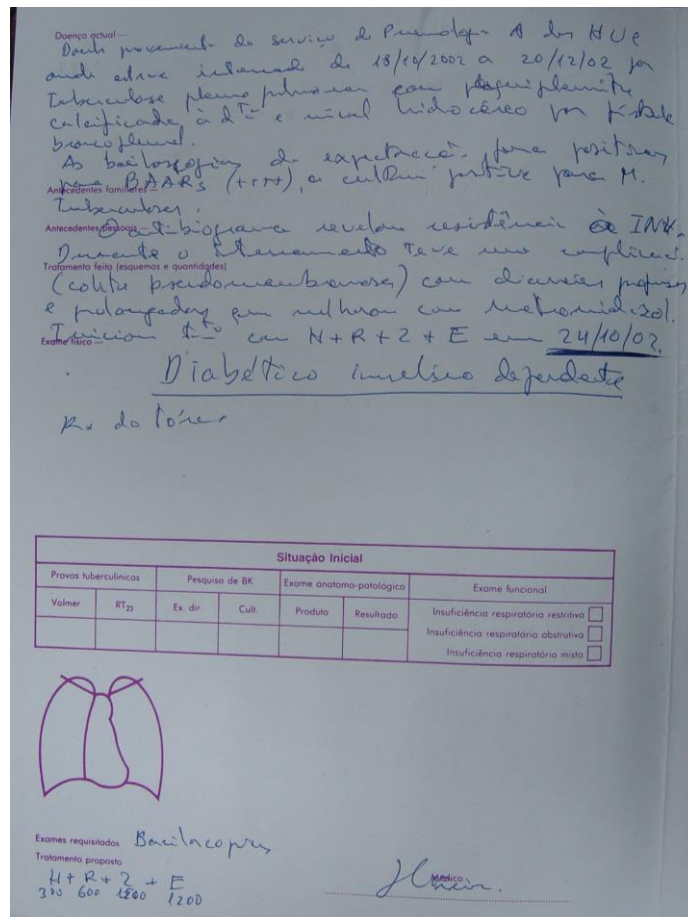 Doença actual —
Doente proveniente do serviço de Pneumologia A dos HUC
onde esteve internado de 18/10/2002 a 20/12/02 por
Tuberculose pleuro pulmonar com paquipleurite
calcificada à dta e nível hidroaéreo por fístula
broncopleural.
As baciloscopias da expectoração foram positivas
para BAARs (+++), a cultura positiva para M.
Antecedentes familiares —
Tuberculoses.
Antecedentes pessoais —
O antibiograma revelou resistência à INH.
Durante o internamento teve uma complicaçã.
Tratamento feito (esquemas e quantidades)
(colite pseudomembranosa) com diarreias profusas
e prolongadas que melhorou com metronidazol.
Iniciou tto com H + R + Z + E em 24/10/02.
Exame físico —
Diabético insulino dependente
Rx do tórax
Situação Inicial
Provas tuberculínicas Pesquisa de BK Exame anatomo-patológico Exame funcional
Volmer RT23 Ex. dir. Cult. Produto Resultado Insuficiência respiratória restritiva
Insuficiência respiratória obstrutiva
Insuficiência respiratória mista
Exames requisitados Baciloscopias
Tratamento proposto
H + R + Z + E
300 600 1200 1200
Médico